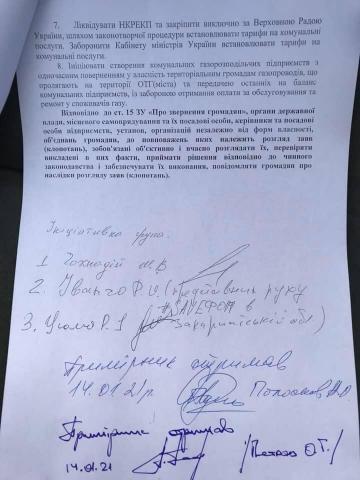 7. Ліквідувати НКРЕКП та закріпити виключно за Верховною Радою
України, шляхом законотворчої процедури встановлювати тарифи на комунальні
послуги. Заборонити Кабінету міністрів України встановлювати тарифи на
комунальні послуги.
8. Ініціювати створення комунальних газорозподільчих підприємств з
одночасним поверненням у власність територіальним громадам газопроводів, що
пролягають на території ОТГ(міста) та передачею останніх на баланс
комунальних підприємств, із забороною отримання оплати за обслуговування та
ремонт у споживачів газу.
Відповідно до ст. 15 ЗУ «Про звернення громадян», органи державної
влади, місцевого самоврядування та їх посадові особи, керівники та посадові
особи підприємств, установ, організацій незалежно від форм власності,
об'єднань громадян, до повноважень яких належить розгляд заяв
(клопотань), зобов'язані об'єктивно і вчасно розглядати їх, перевіряти
викладені в них факти, приймати рішення відповідно до чинного
законодавства і забезпечувати їх виконання, повідомляти громадян про
наслідки розгляду заяв (клопотань).
Ініціативна група:
1
2. Іванчо Р.І. (представник руху
#SAVEФОП в
3. Р.І Закарпатській обл)
Примірник отримав
14.01.21р.
Примірник отримав
14.01.21